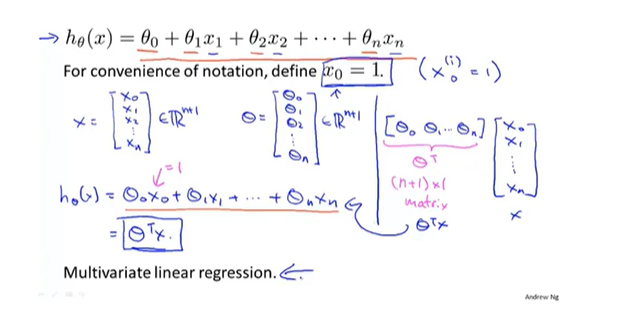 → hθ(x) = θ₀ + θ₁x₁ + θ₂x₂ + ··· + θₙxₙ
For convenience of notation, define x₀ = 1. (x₀⁽ⁱ⁾ = 1)
x = [x₀ x₁ x₂ ⋮ xₙ] ∈ ℝⁿ⁺¹ θ = [θ₀ θ₁ θ₂ ⋮ θₙ] ∈ ℝⁿ⁺¹
[θ₀ θ₁ ··· θₙ] [x₀ x₁ ⋮ xₙ]
θᵀ
(n+1) × 1
matrix
x
θᵀx
= 1
hθ(x) = θ₀x₀ + θ₁x₁ + ··· + θₙxₙ
= θᵀx.
Multivariate linear regression. ←
Andrew Ng